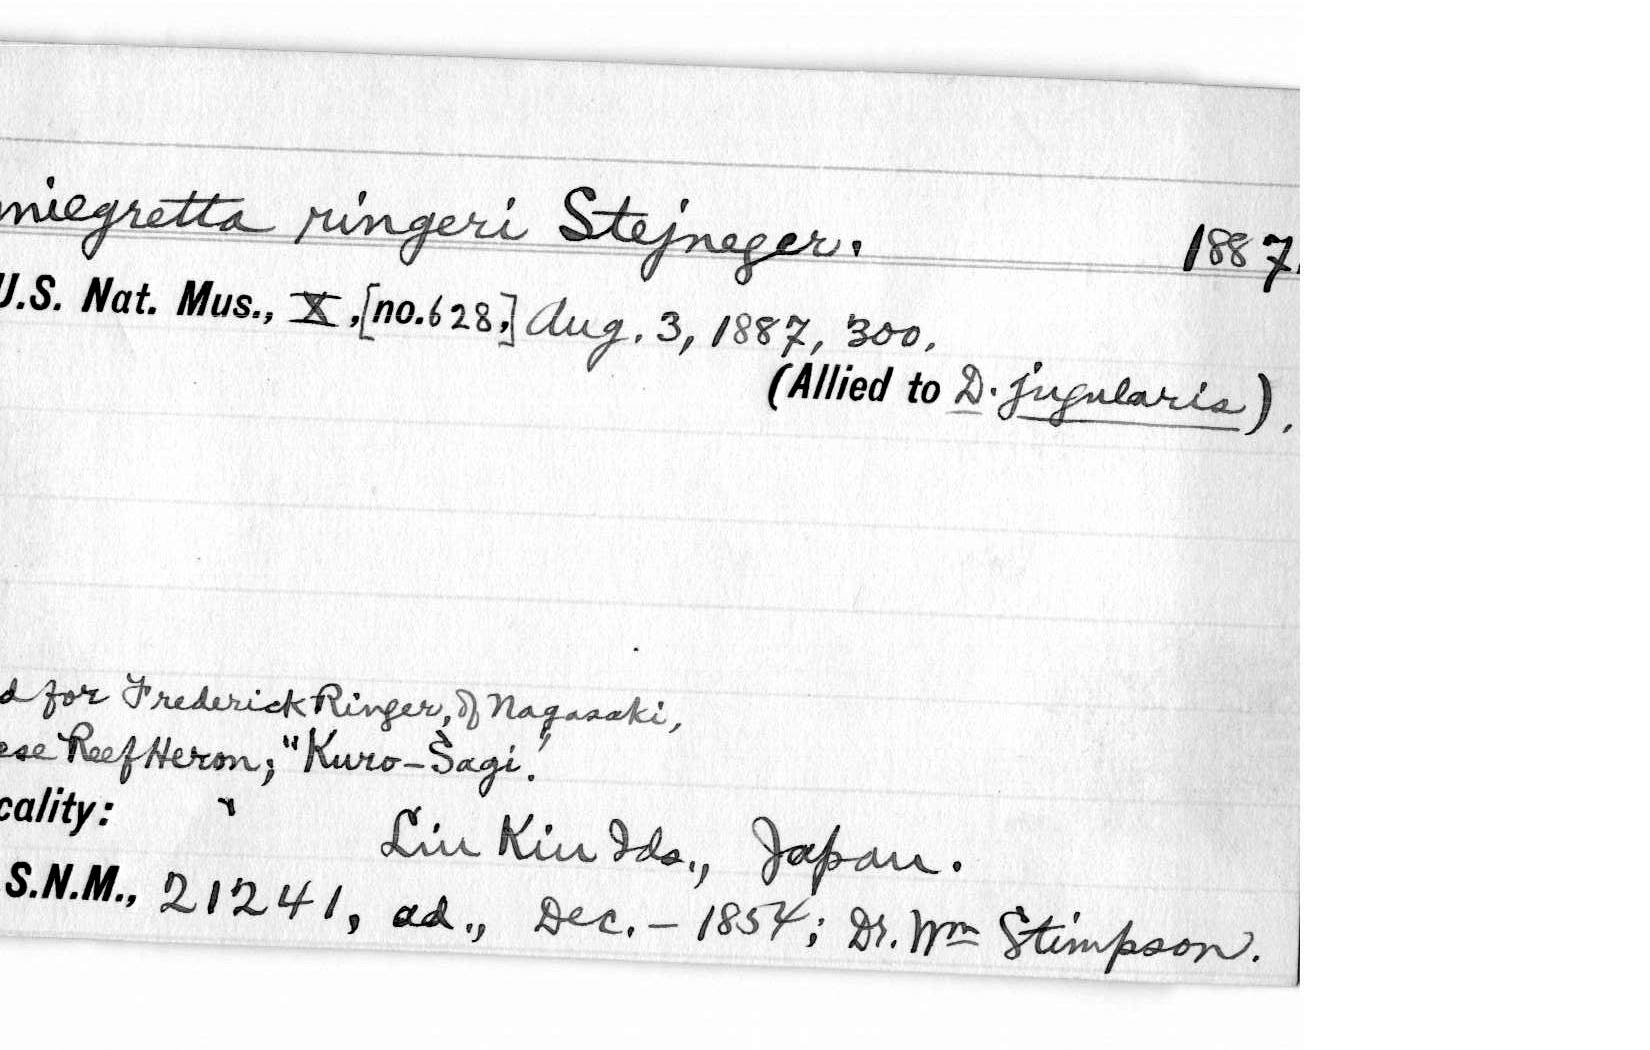 miegretta ringeri Stejneger. 1887.
U.S. Nat. Mus., X, [no. 628,] Aug. 3, 1887, 300.
(Allied to D. jugularis).
d for Frederick Ringer, of Nagasaki,
ese Reef Heron; "Kuro-Sagi."
cality: Liu Kiu Ids., Japan.
S.N.M., 21241, ad., Dec. – 1854; Dr. Wm Stimpson.